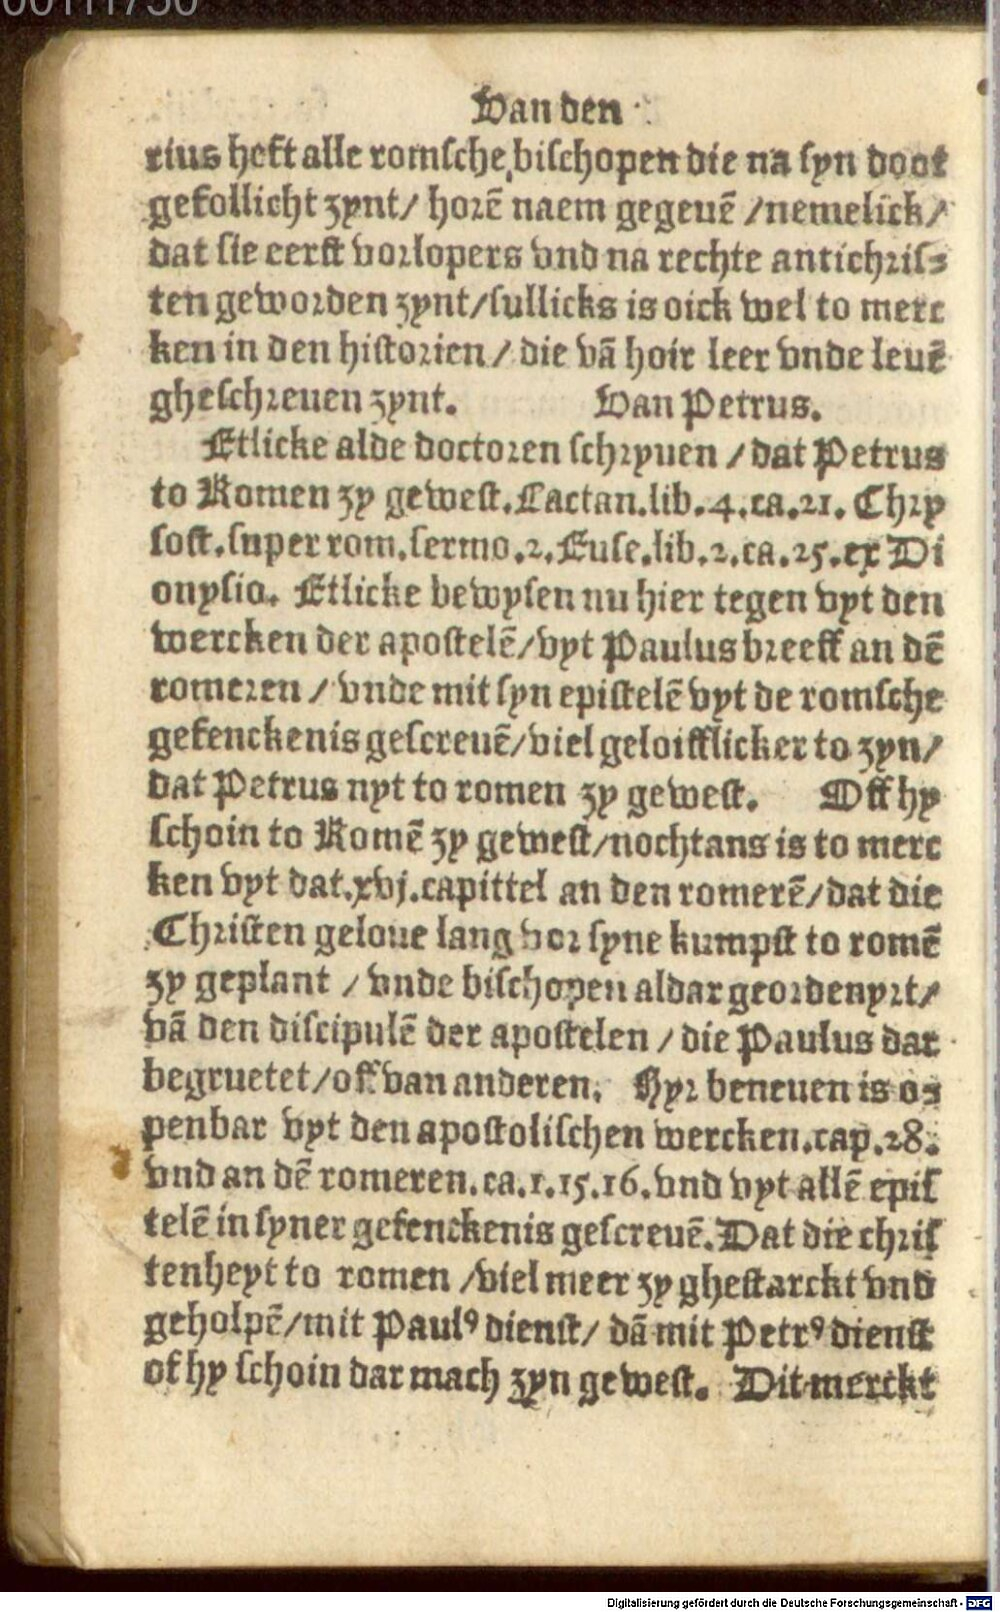 Van den
rius heft alle romsche bischopen die na syn doot
gefollicht zynt/ horẽ naem gegeuẽ /nemelick/
dat sie eerst vorlopers vnd na rechte antichris⸗
ten geworden zynt/sullicks is oick wel to merc
ken in den historien / die vã hoir leer vnde leuẽ
gheschreuen zynt. Van Petrus.
Etlicke alde doctoren schryuen / dat Petrus
to Romen zy gewest. Lactan.lib.4.ca.21. Chry
sost.super rom.sermo.2.Euse.lib.2.ca.25.ex Di
onysio. Etlicke bewysen nu hier tegen vyt den
wercken der apostelẽ/vyt Paulus breeff an dẽ
romeren / vnde mit syn epistelẽ vyt de romsche
gefenckenis gescreuẽ/viel geloifflicker to zyn/
dat Petrus nyt to romen zy gewest. Off hy
schoin to Romẽ zy gewest/nochtans is to merc
ken vyt dat.xvj.capittel an den romerẽ/dat die
Christen geloue lang vor syne kumpst to romẽ
zy geplant / vnde bischopen aldar geordenyrt/
vã den discipulẽ der apostelen / die Paulus dar
begruetet/off van anderen. Hyr beneuen is o⸗
penbar vyt den apostolischen wercken.cap.28.
vnd an dẽ romeren.ca.1.15.16.vnd vyt allẽ epis
telẽ in syner gefenckenis gescreuẽ. Dat die chris
tenheyt to romen /viel meer zy ghestarckt vnd
geholpẽ/mit Paulꝰ dienst/ dã mit Petrꝰ dienst
of hy schoin dar mach zyn gewest. Dit merckt
Digitalisierung gefördert durch die Deutsche Forschungsgemeinschaft - DFG